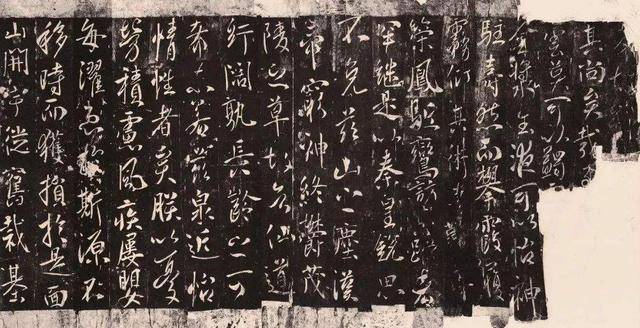 其尚矣哉
草可以蠲
金漿玉液可以怡神
駐壽然而攀霞履
霧仰其術者罕
策鳳驅鸞訪其蹊者
罕繼是以秦皇銳思
不免茲山之塵漢
帝窮神終鬱茂
陵之草故知仙道
行闊孰長齡之可
希未若巖泉近怡
情性者矣朕以憂
勞積慮風疾屢嬰
每濯患於斯源不
移時而獲損於是面
山開宇從舊裁基